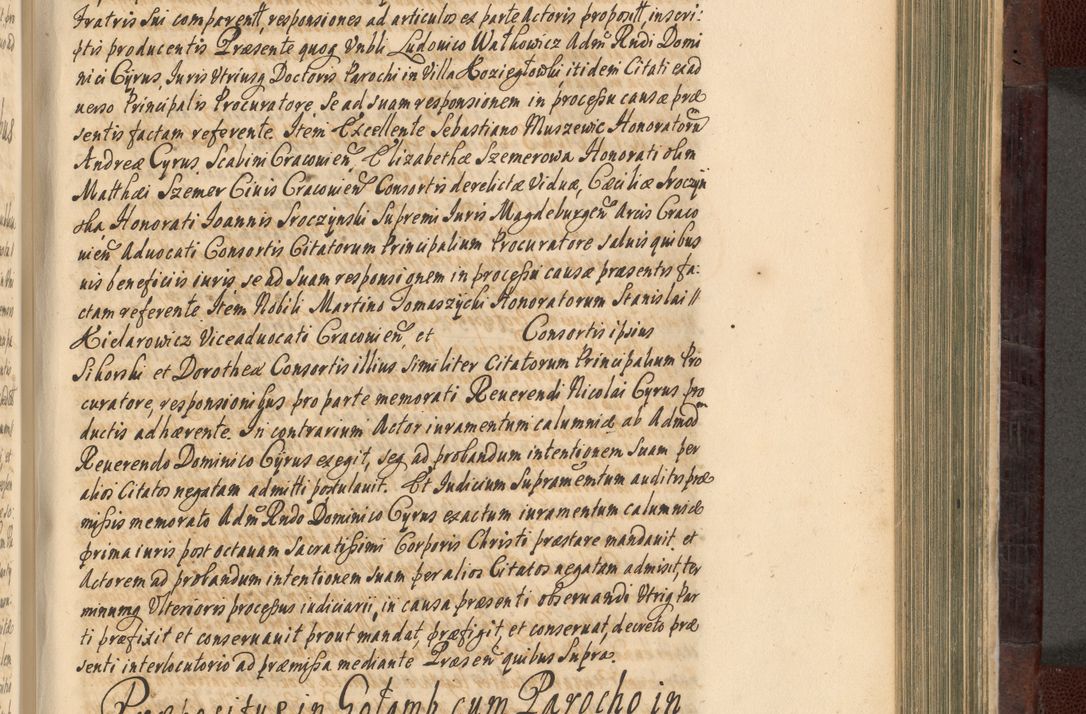 Fratris Sui comparentt, responsiones ad articulos ex parte Actoris propositt, inscri:
ptis producentis Præsente quoq Vnbli Ludovico Wałkowicz Adm Rndi Domi
nici Cÿrus, Iuris Vtriusq Doctoris Parochi in Villa Koziegłowki itidem Citati ex ad
uerso Principalis Procuratore, Se ad suam responsionem in processu causæ præ
sentis factam referente. Item Excellente Sebastiano Muszewic Honoratorum
Andreæ Cyrus Scabini Cracouien Elizabethæ Szemerowa Honorati olim
Matthæi Szemer Ciuis Cracouien Consortis derelictæ Viduæ, Cæciliæ Sroczyn
ska Honorati Ioannis Sroczynski Supremi Iuris Magdeburgen Arcis Craco
uien Aduocati Consortis Citatorum Principalium Procuratore saluis quibus
uis beneficiis iuris, se ad suam responsionem in processu causæ præsentis fa:
ctam referente. Item Nobili Martino Tomaszycki Honoratorum Stanislai
Kielarowicz Viceaduocati Cracouien, et Consortis ipsius
Sikorski et Dorotheæ Consortis illius similiter Citatorum Principalium Pro
curatore, responsionibus pro parte memorati Reuerendi Nicolai Cyrus pro
ductis adhærente. In contrarium Actor iuramentum calumniæ ab Admodm
Reuerendo Dominico Cÿrus exegit, seq ad probandum intentionem suam per
alios Citatos negatam admitti postulauit. Et Iudicium Supramentum auditis præ
missis memorato Adm Rndo Dominico Cyrus exactum iuramentum calumniæ
prima iuris post octauam Sacratissimi Corporis Christi præstare mandauit et
Actorem ad probandum intentionem suam per alios Citatos negatam admisit, ter
minumq Vlterioris processus iudiciarii, in causa præsenti obseruandi Vtriq Par
ti præfixit et conseruauit prout mandat, præfigit, et conseruat, decreto præ
senti interlocutorio ad præmissa mediante Præsen quibus Supra.
Præpositus in Gołamb cum Parocho in